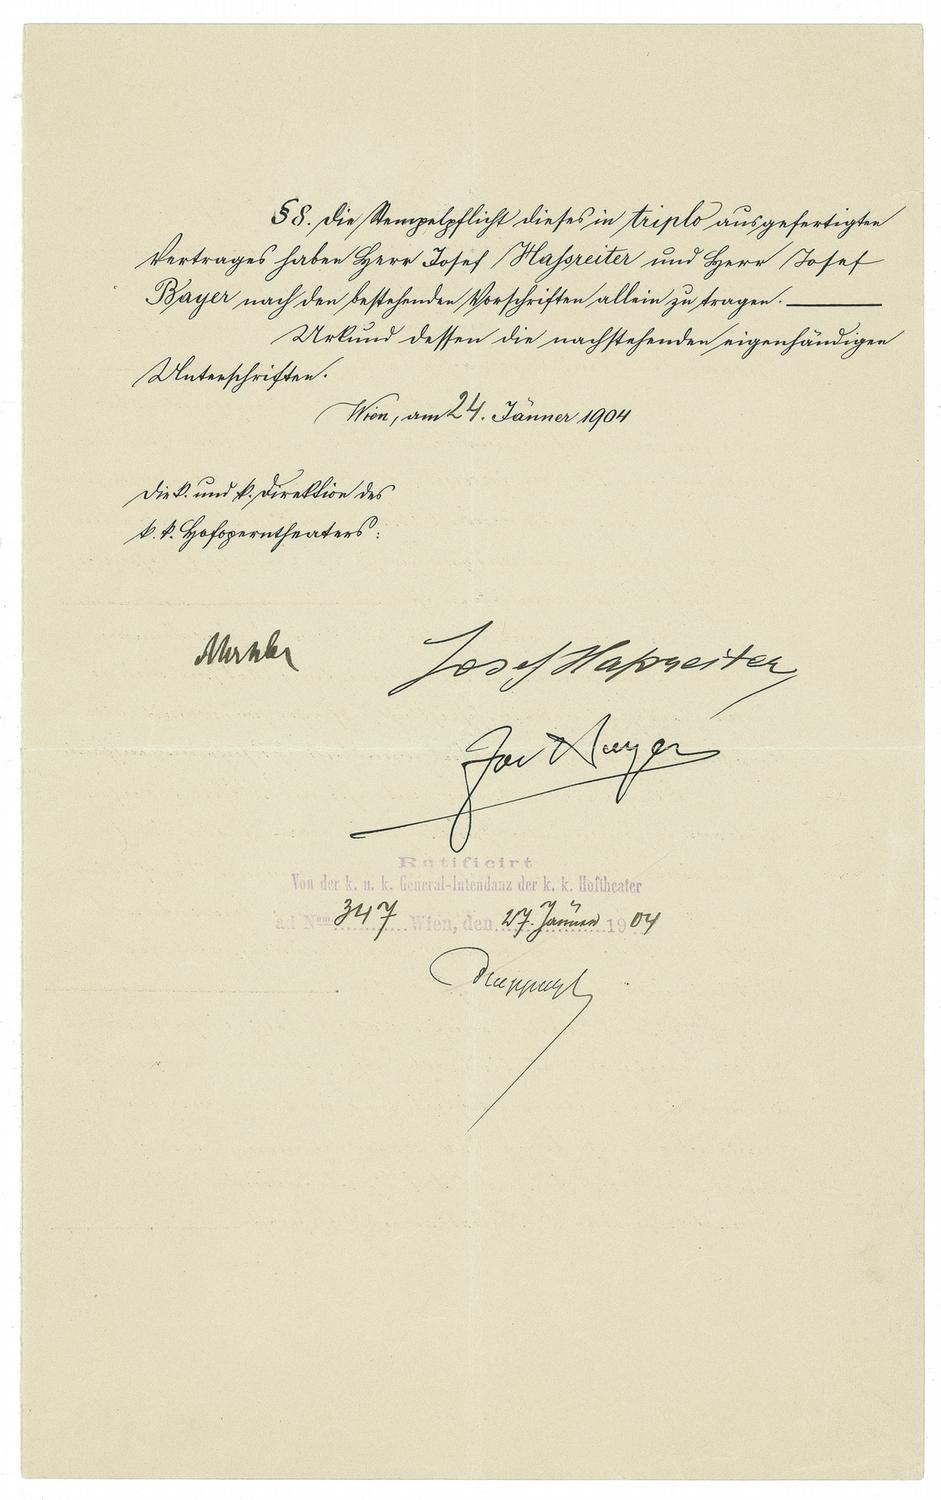 § 8. Die Stempelpflicht dieses in triplo ausgefertigten
Vertrages haben Herr Josef Haßreiter und Herr Josef
Bayer nach den bestehenden Vorschriften allein zu tragen.
Urkund dessen die nachstehenden eigenhändigen
Unterschriften.
Wien, am 24. Jänner 1904
Die k. und k. Direktion des
k. k. Hofoperntheaters:
Mahler
Josef Haßreiter
Jos Bayer
Ratificirt
Von der k. u. k. General-Intendanz der k. k. Hoftheater
ad Num 347 Wien, den 27. Jänner 1904